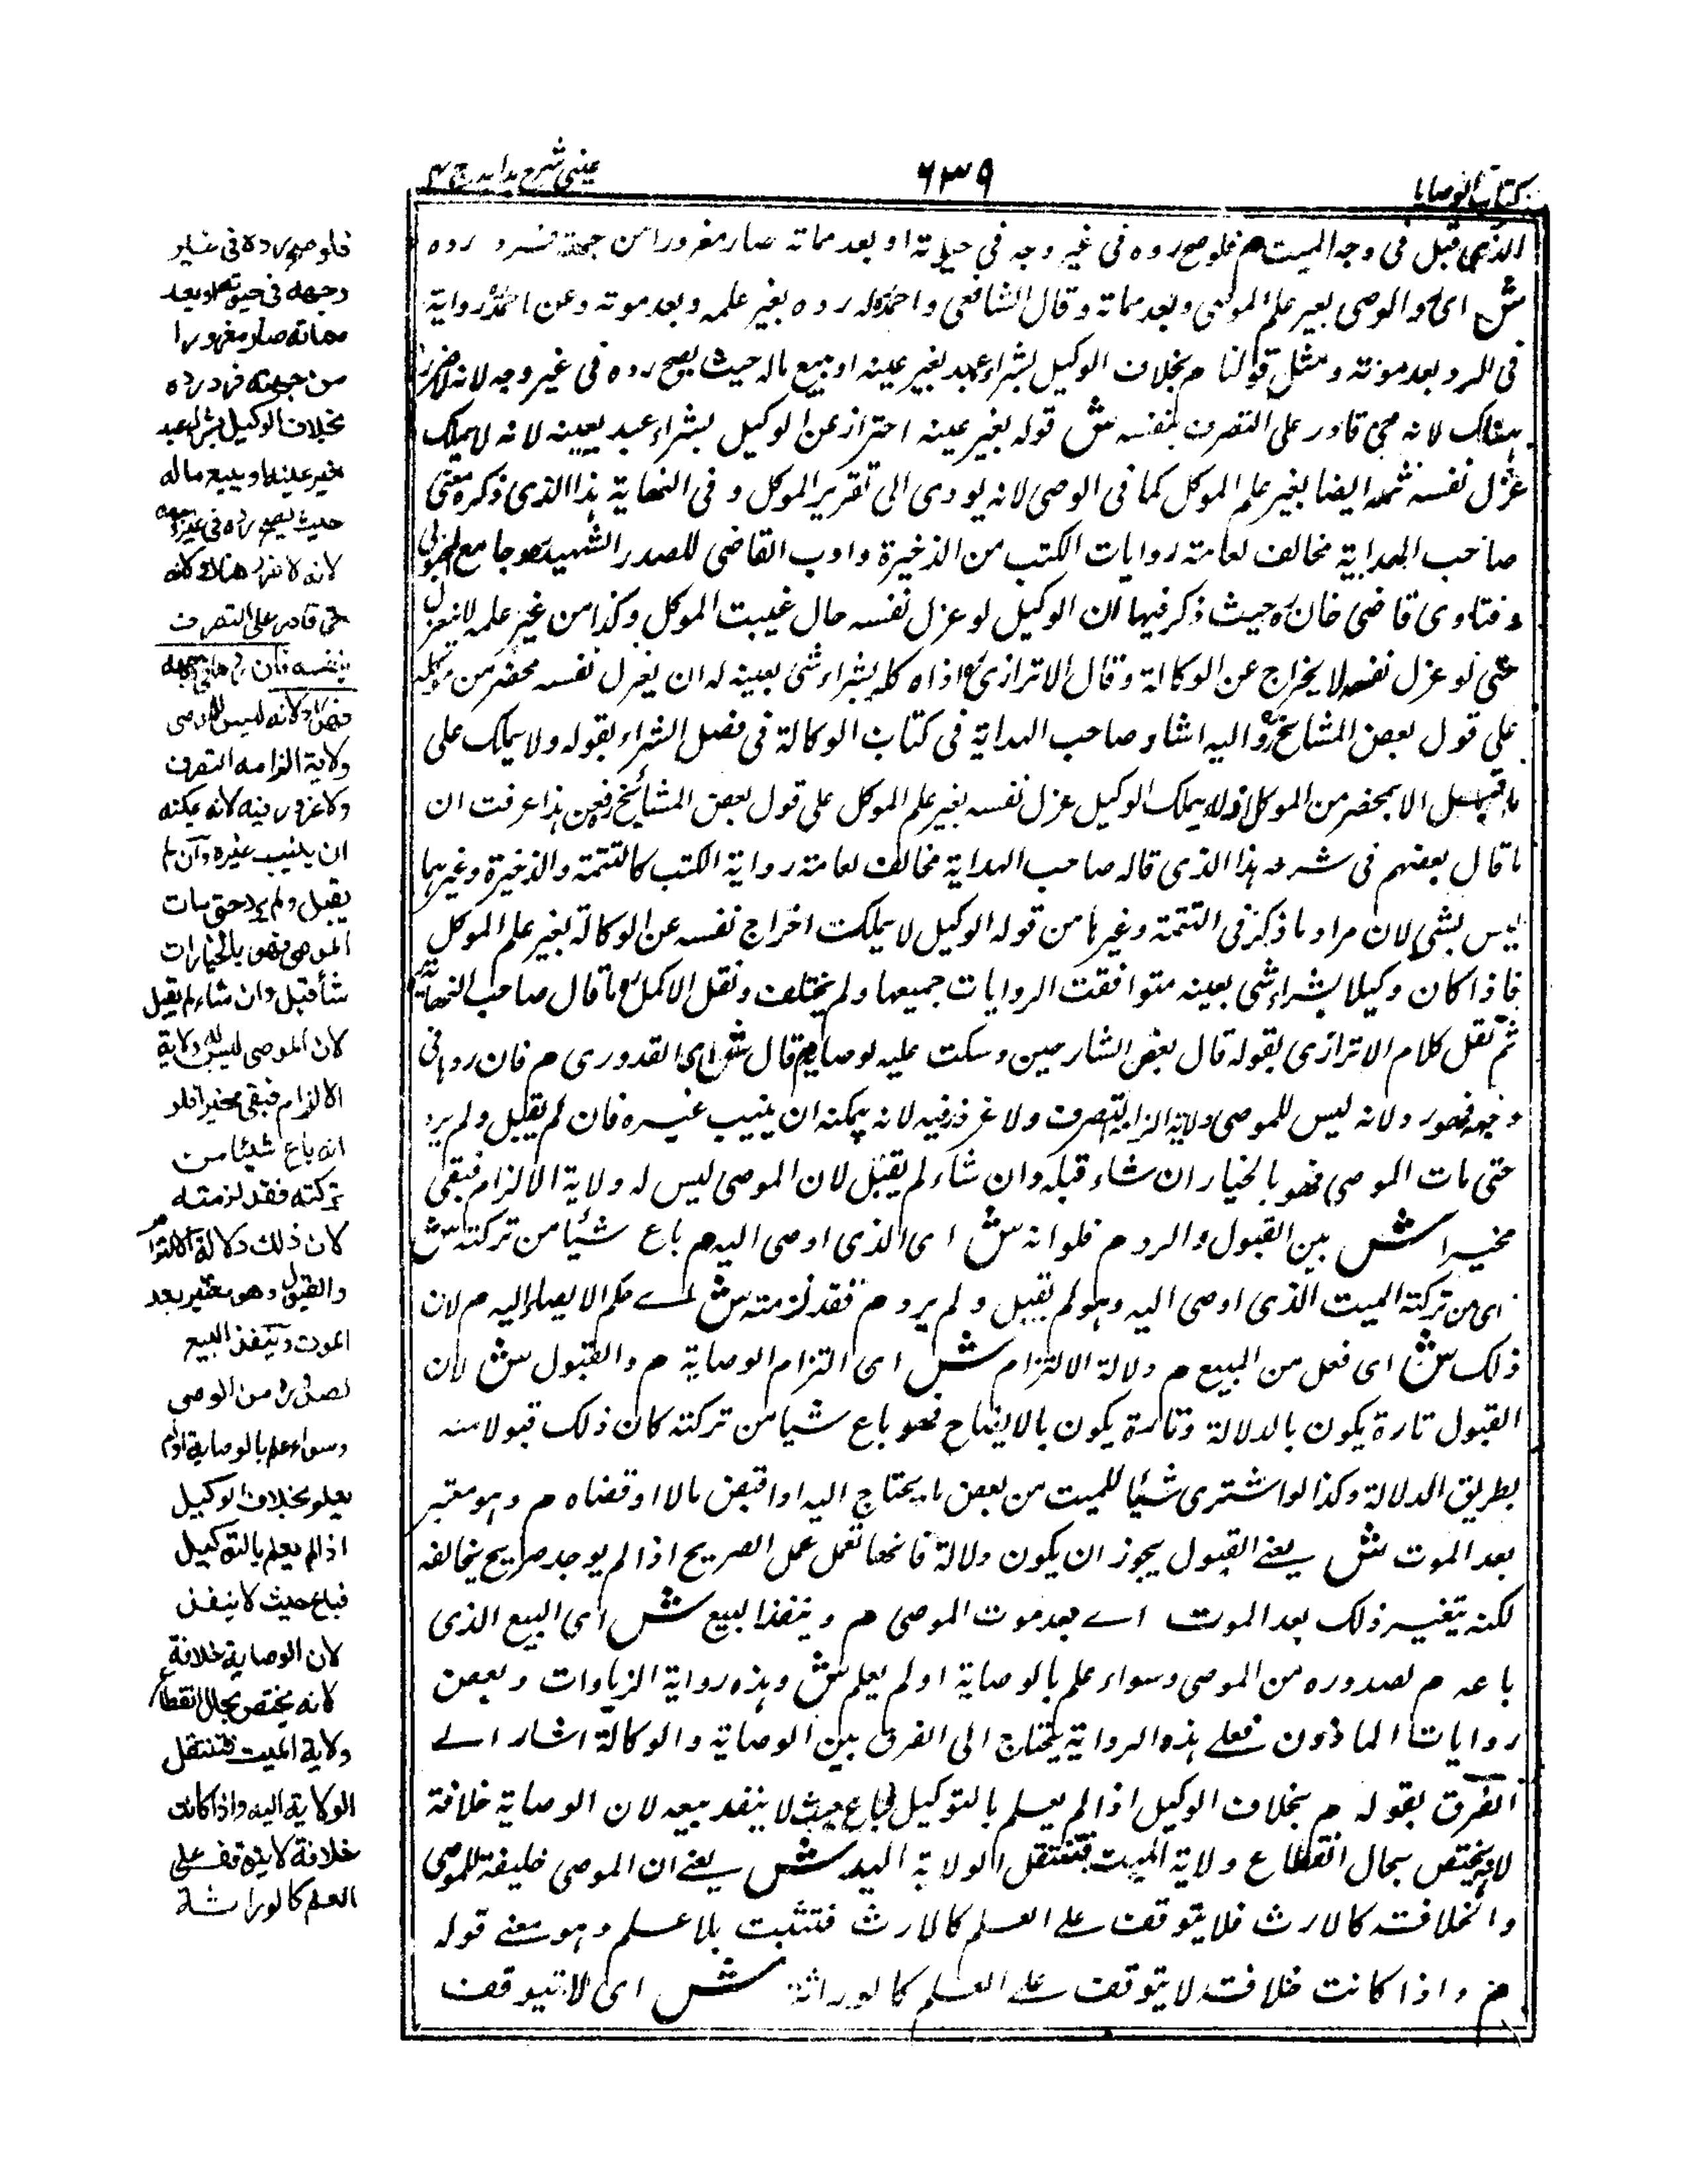 كتاب الوصايا
٦٣٩
عينى شرح هدايه ج ٤
الذى قبل فى وجه الميت م فلو صح رده فى غير وجهه فى حياته او بعد مماته صار مغرورا من جهته فيرد رده
ش اى رد الموصى بغير علم الموصى وبعد مماته وقال الشافعى واحمد له رده بغير علمه وبعد موته وعن احمد رواية
فى الرد بعد موته ومثل قولنا م بخلاف الوكيل بشراء عبد بغير عينه او ببيع ماله حيث يصح رده فى غير وجهه لانه لاضرر
هناك لانه حى قادر على التصرف بنفسه ش قوله بغير عينه احتراز عن الوكيل بشراء عبد بعينه لانه لا يملك
عزل نفسه ثمه ايضا بغير علم الموكل كما فى الوصى لانه يودى الى تقرير الموكل وفى النهاية هذا الذى ذكره
صاحب الهداية مخالف لعامة روايات الكتب من الذخيرة وادب القاضى للصدر الشهيد وجامع المحبوبى
وفتاوى قاضى خان حيث ذكر فيها ان الوكيل لو عزل نفسه حال غيبت الموكل وكذا من غير علمه لا ينعزل
حتى لو عزل نفسه لا يخراج عن الوكالة وقال الاترازى اذا وكله بشراء شى بعينه له ان يعزل نفسه محضر من موكله
على قول بعض المشايخ واليه اشار صاحب الهداية فى كتاب الوكالة فى فصل الشراء بقوله ولا يملك على
ما قيل الا بمحضر من الموكل لا يملك الوكيل عزل نفسه بغير علم الموكل على قول بعض المشائخ فعن هذا عرفت ان
ما قال بعضهم فى شرحه هذا الذى قاله صاحب الهداية مخالف لعامة رواية الكتب كالتتمة والذخيرة وغيرهما
ليس بشى لان مراد ما ذكر فى التتمة وغيرها من قوله الوكيل لا يملك اخراج نفسه عن الوكالة بغير علم الموكل
فاذا كان وكيلا بشراء شى بعينه متوافقت الروايات جميعها ولم يختلف ونقل الاكمل ما قال صاحب النهاية
ثم نقل كلام الاترازى بقوله قال بعض الشارحين وسكت عليه م قال ش اى القدورى م فان ردها فى
وجهه فهو رد ولانه ليس للموصى ولاية الزامه التصرف ولا غرور فيه لانه يمكنه ان ينيب غيره فان لم يقبل ولم يرد
حتى مات الموصى فهو بالخيار ان شاء قبله وان شاء لم يقبل لان الموصى ليس له ولاية الالزام فبقى
مخيرا ش بين القبول والرد م فلو انه ش اى الذى اوصى اليه م باع شيئا من تركته ش
اى من تركة الميت الذى اوصى اليه وهو لم يقبل ولم يرد م فقد لزمته ش م لان
ذلك ش اى فعل من البيع م دلالة الالتزام ش اى التزام الوصاية م والقبول ش لان
القبول تارة يكون بالدلالة وتارة يكون بالايضاح فهو باع شيا من تركته كان ذلك قبولا منه
بطريق الدلالة وكذا لو اشترى شيئا للميت من بعض ما يحتاج اليه او اقبض مالا او قضاه م وهو معتبر
بعد الموت ش يعنے القبول يجوز ان يكون دلالة فانها تعمل عمل الصريح اذا لم يوجد صريح يخالفه
لكنه يتغير ذلك بعد الموت اے بعد موت الموصى م وينفذ البيع ش اى البيع الذى
باعه م لصدوره من الموصى وسواء علم بالوصاية اولم يعلم ش وهذه رواية الزيادات وبعض
روايات الماذون فعلے هذه الرواية يحتاج الى الفرق بين الوصاية والوكالة اشار الے
الفرق بقوله م بخلاف الوكيل اذا لم يعلم بالتوكيل فباع حيث لا ينفد بيعه لان الوصاية خلافة
لانه يختص بحال انقطاع ولاية الميت فتنتقل الولاية اليه ش يعنے ان الموصى خليفة للموصى
والخلافة كالارث فلا يتوقف علے العلم كالارث فتثبت بلا علم وهو معنے قوله
م واذا كانت خلافة لا يتوقف علے العلم كالوراثة ش اى لا تتوقف
فلو صح رده فى غير
وجهه فى حيوته او بعد
مماته صار مغرورا
من جهته فرد رده
بخلاف الوكيل بشراء عبد
بغير عينه او ببيع ماله
حيث يصح رده فى غير وجهه
لانه لا ضرر هناك لانه
حى قادر على التصرف
بنفسه فان ردها فى وجهه
فهو رد لانه ليس للموصى
ولاية الزامه التصرف
ولا غرور فيه لانه يمكنه
ان ينيب غيره وان لم
يقبل ولم يرد حتى مات
الموصى فهو بالخيار ان
شاء قبل وان شاء لم يقبل
لان الموصى ليس له ولاية
الالزام فبقى مخيرا فلو
انه باع شيئا من
تركته فقد لزمته
لان ذلك دلالة الالتزام
والقبول وهو معتبر بعد
الموت وينفذ البيع
لصدوره من الوصى
وسواء علم بالوصاية اولم
يعلم بخلاف الوكيل
اذا لم يعلم بالتوكيل
فباع حيث لا ينفذ
لان الوصاية خلافة
لانه يختص بحال انقطاع
ولاية الميت فتنتقل
الولاية اليه واذا كانت
خلافة لا يتوقف على
العلم كالوراثة